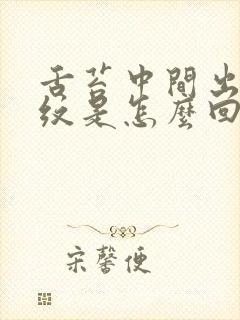 舌苔中間出
紋是怎麼回
宋馨便